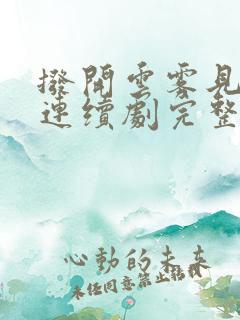 撥開雲霧見
連續劇完整
心動的未來
未經同意禁止轉載